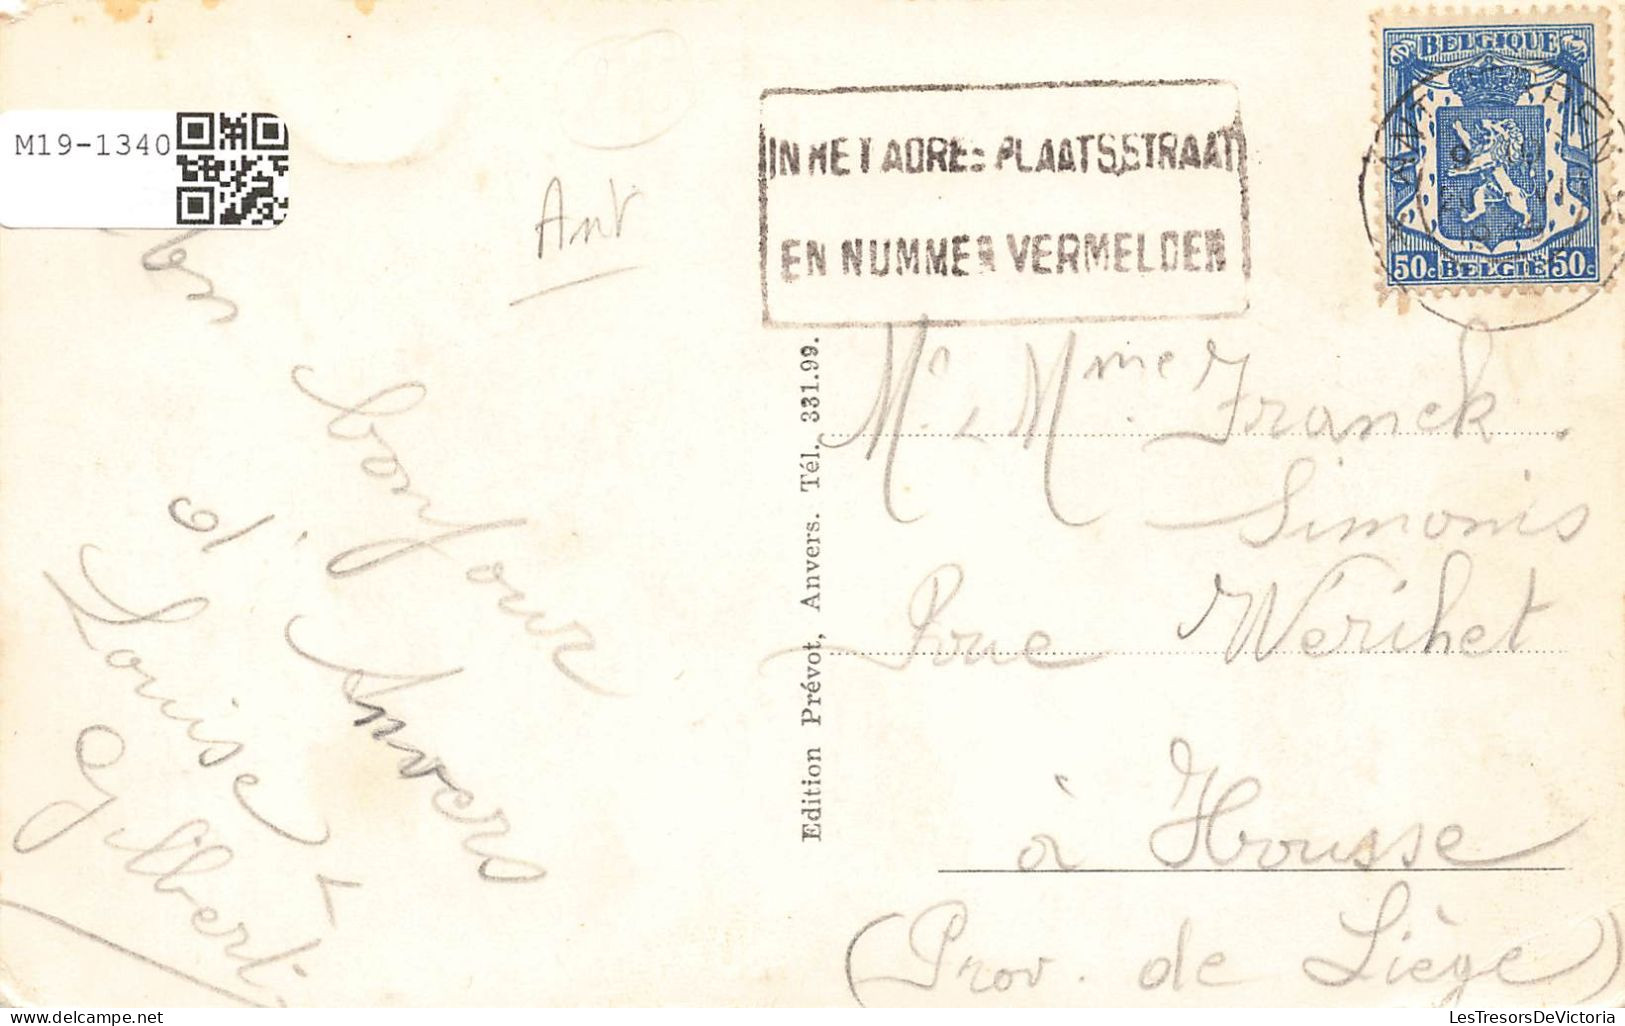 M19-1340
Ant
IN HET ADRES PLAATS, STRAAT
EN NUMMER VERMELDEN
BELGIQUE
50c BELGIË 50c
Bon
bonjour
d'Anvers
Louise
Gilbert
Edition Prévot, Anvers. Tél. 331.99.
Mr, Mme Franck.
Simonis
Rue Werihet
à Housse
(Prov. de Liège)
delcampe.net
LesTresorsDeVictoria